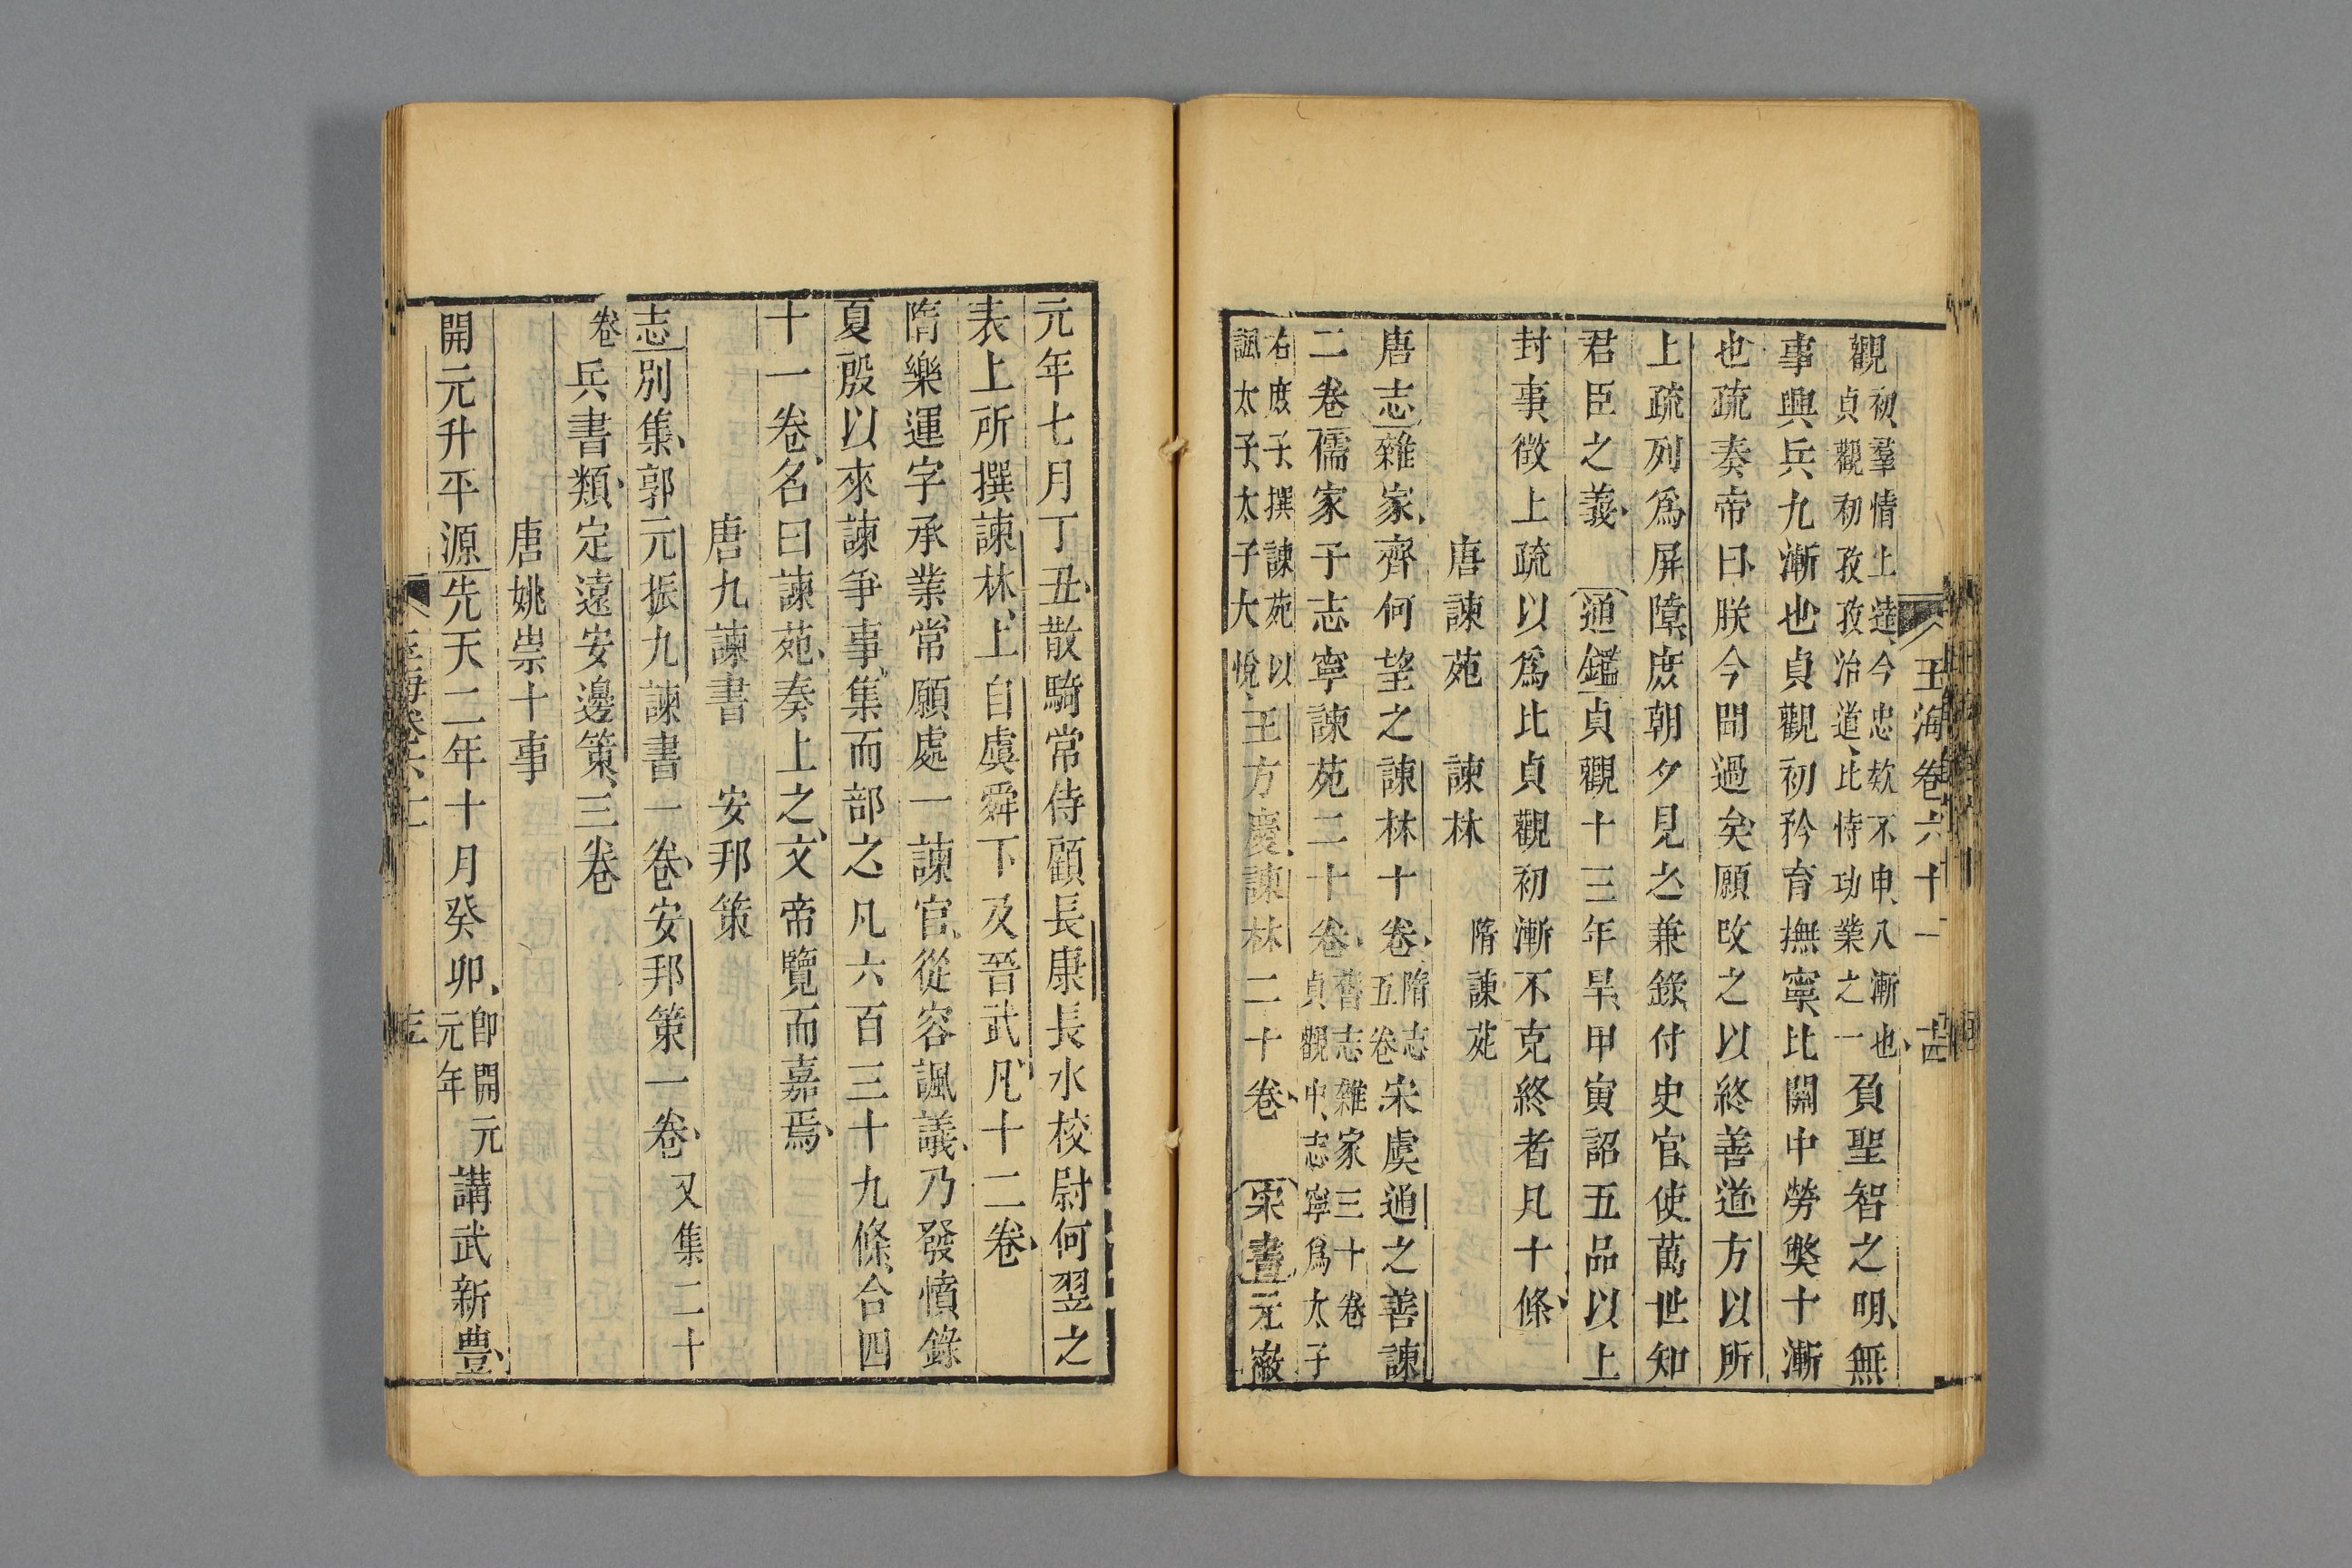 玉海卷六十一 十四
觀初羣情上達今忠欵不申八漸也貞觀初孜孜治道比恃功業之一負聖智之明無
事興兵九漸也貞觀初矜育撫寧比關中勞獘十漸
也疏奏帝曰朕今聞過矣願改之以終善道方以所
上疏列爲屏障庶朝夕見之兼錄付史官使萬世知
君臣之義 通鑑貞觀十三年旱甲寅詔五品以上
封事徵上疏以爲比貞觀初漸不克終者凡十條
唐諫苑 諫林 隋諫苑
唐志雜家齊何望之諫林十卷隋志五卷宋虞通之善諫
二卷儒家于志寧諫苑二十卷舊志雜家三十卷貞觀中志寧爲太子
右庶子撰諫苑以諷太子太子大悅王方慶諫林二十卷 宋書元徽
元年七月丁丑散騎常侍顧長康長水校尉何翌之
表上所撰諫林上自虞舜下及晉武凡十二卷
隋樂運字承業常願處一諫官從容諷議乃發憤錄
夏殷以來諫爭事集而部之凡六百三十九條合四
十一卷名曰諫苑奏上之文帝覽而嘉焉
唐九諫書 安邦策
志別集郭元振九諫書一卷安邦策一卷又集二十
卷兵書類定遠安邊策三卷
唐姚崇十事
開元升平源先天二年十月癸卯卽開元元年講武新豊
玉海卷六十一